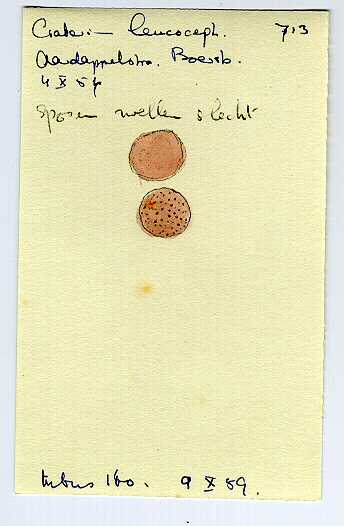 Craterium leucoceph. 713
Aardappelstro. Boesb.
4 X 54
Sporen wellen slecht
tubus 160. 9 X 89.